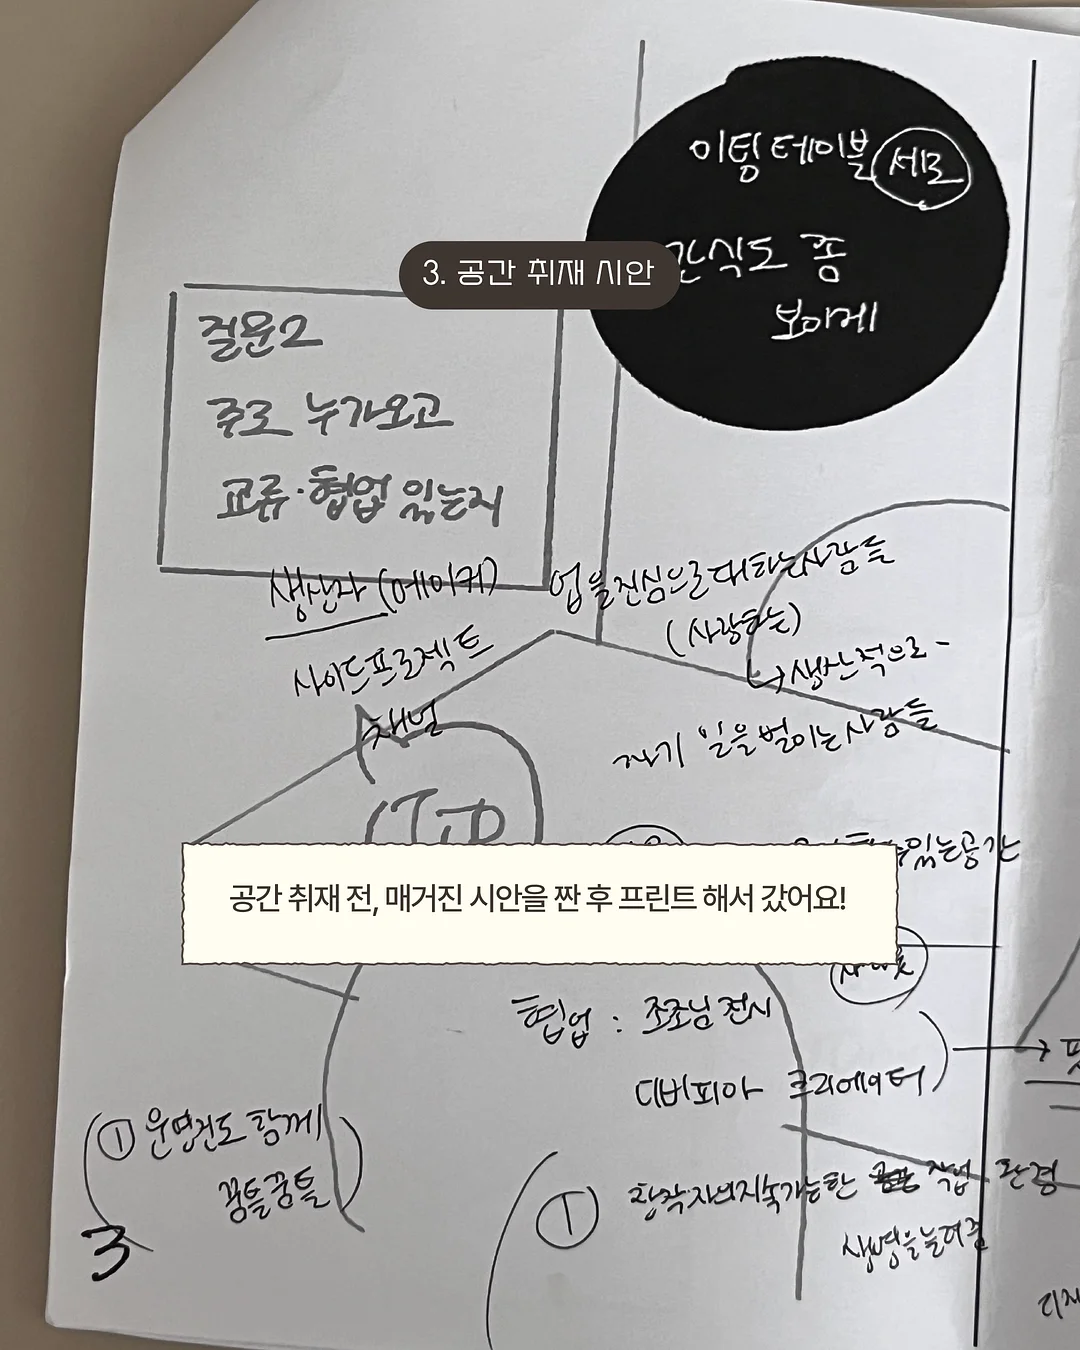 이팅 테이블 세로
간식도 좀
보이게
3. 공간 취재 시안
질문2
주로 누가오고
교류·협업 있는지
생산자 (메이커)
사이드프로젝트
채널
업을 진심으로 대하는 사람들
(사랑하는)
↳ 생산적으로 -
자기 일을 벌이는 사람들
TiP
있는 공간
공간 취재 전, 매거진 시안을 짠 후 프린트 해서 갔어요!
협업 : 조조님 전시
디버피아 크리에이터
① 운면건도 함께
꿈틀꿈틀
① 창작자의 지속가능한 작업 환경
생명을 늘려줌
3